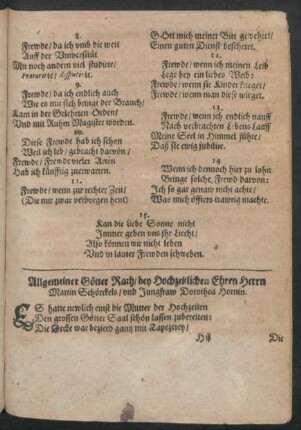 8.
Frewde / da ich vmb die welt
Auff der Vniversität
Mit noch andern viel studirte /
Proturirte / disputirte.
9.
Frewde / da ich endlich auch
Wie es mit sich bringt der Brauch /
Kam in der Gelehrten Orden /
Vnd mit Ruhm Magister worden.
10.
Diese Frewde hab ich schon
Weil ich leb / gebracht darvon /
Frewde / Frewde vieler Arten
Hab ich künfftig zuerwarten.
11.
Frewde / wenn zur rechter Zeit /
(Die mir zwar verborgen heut)
GOtt mich meiner Bitt gewehret /
Einen guten Dienst bescheret.
12.
Frewde / wenn ich meinem Leib
Lege bey ein liebes Weib:
Frewde / wenn sie Kinder krieget /
Frewde / wenn man diese wieget.
13.
Frewde / wenn ich endlich nauff
Nach vorbrachten Lebens Lauff
Meine Seel in Himmel führe /
Daß sie ewig jubilire.
14
Wenn ich demnoch hier zu lohn
Bringe solche Frewd darvon:
Ich so gar genaw nicht achte /
Was mich öffters trawrig machte.
15.
Kan die liebe Sonne nicht
Immer geben vns jhr Liecht /
Also können wir nicht leben
Vnd in lauter Frewden schweben.
Allgemeiner Götter Rath / bey Hochzeitlichen Ehren Herrn
Martin Schörckels / vnd Jungfraw Dorothea Hornin.
ES hatte newlich einst die Mutter der Hochzeiten
Den grossen Götter Saal schön lassen zubereiten:
Die Decke war bezierd gantz mit Tapezerey /
Hij Die